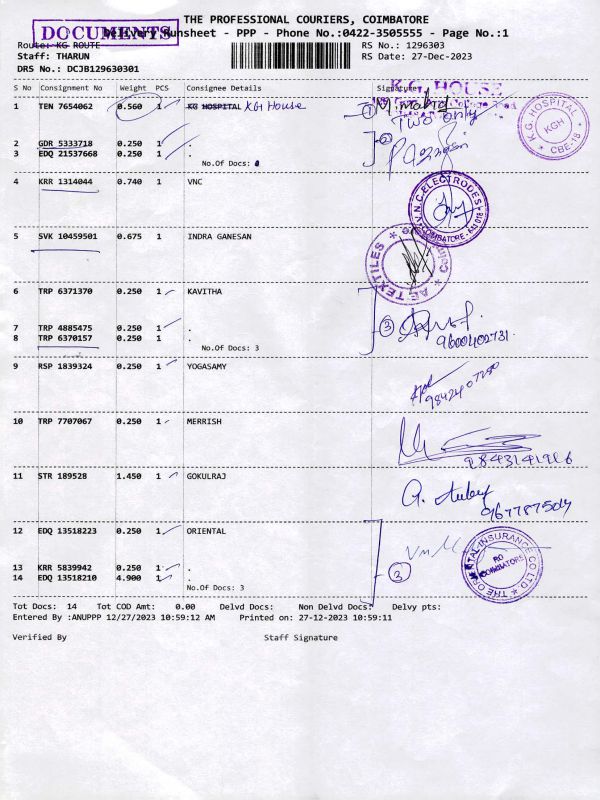 THE PROFESSIONAL COURIERS, COIMBATORE
DOCUMENTS
Delivery Runsheet - PPP - Phone No.:0422-3505555 - Page No.:1
Route: KG ROUTE
RS No.: 1296303
Staff: THARUN
RS Date: 27-Dec-2023
DRS No.: DCJB129630301
S No Consignment No Weight PCS Consignee Details Signature
K.G. HOUSE
1 TEN 7654062 0.560 1 KG HOSPITAL KG House
① Two only
K.G. HOSPITAL KGH CBE-18
2 GDR 5333718 0.250 1 .
3 EDQ 21537668 0.250 1 .
No.Of Docs:
4 KRR 1314044 0.740 1 VNC
V.N.C. ELECTRODES COIMBATORE - 641018
5 SVK 10459501 0.675 1 INDRA GANESAN
TEXTILES
6 TRP 6371370 0.250 1 KAVITHA
7 TRP 4885475 0.250 1 .
③
8 TRP 6370157 0.250 1 .
9600402731
No.Of Docs: 3
9 RSP 1839324 0.250 1 YOGASAMY
9842407280
10 TRP 7707067 0.250 1 MERRISH
11 STR 189528 1.450 1 GOKULRAJ
12 EDQ 13518223 0.250 1 ORIENTAL
THE ORIENTAL INSURANCE CO LTD RO COIMBATORE
13 KRR 5839942 0.250 1 .
③
14 EDQ 13518210 4.900 1 .
No.Of Docs: 3
Tot Docs: 14 Tot COD Amt: 0.00 Delvd Docs: Non Delvd Docs: Delvy pts:
Entered By :ANUPPP 12/27/2023 10:59:12 AM Printed on: 27-12-2023 10:59:11
Verified By Staff Signature